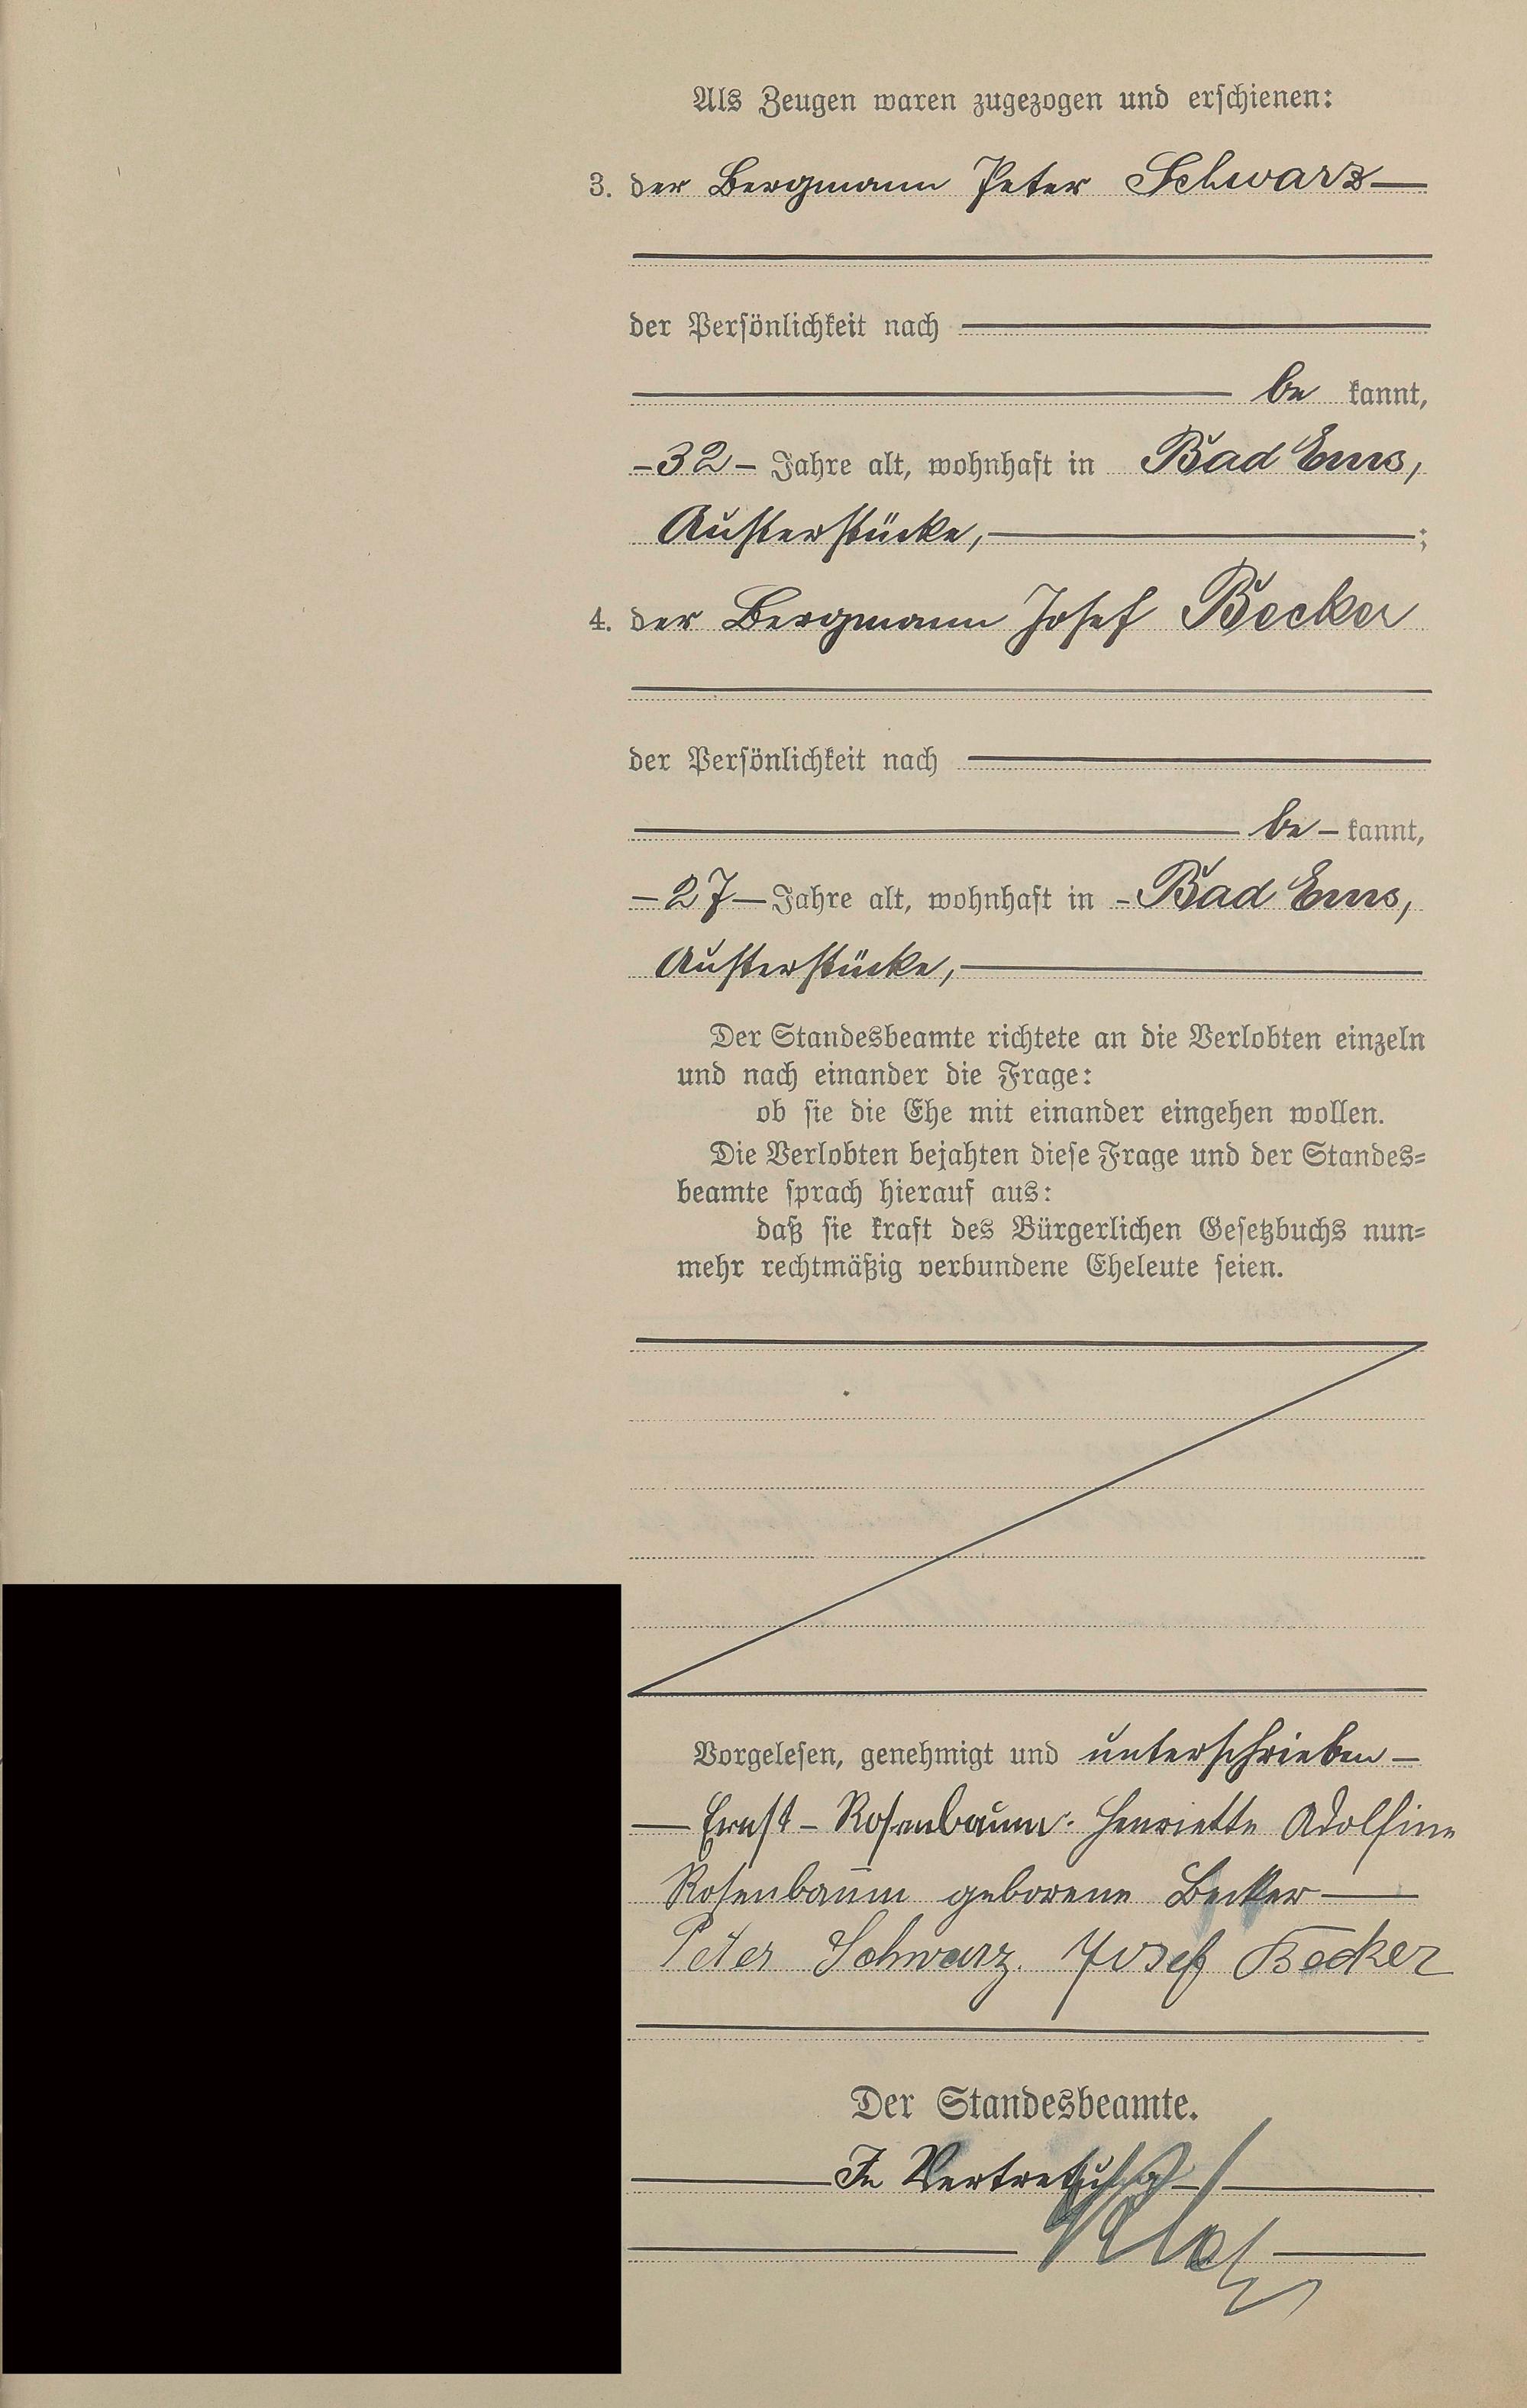 Als Zeugen waren zugezogen und erschienen:
3. der Bergmann Peter Schwarz
der Persönlichkeit nach
be kannt,
-32- Jahre alt, wohnhaft in Bad Ems,
Austerstücke, ;
4. der Bergmann Josef Becker
der Persönlichkeit nach
be- kannt,
-27- Jahre alt, wohnhaft in - Bad Ems,
Austerstücke,
Der Standesbeamte richtete an die Verlobten einzeln
und nach einander die Frage:
ob sie die Ehe mit einander eingehen wollen.
Die Verlobten bejahten diese Frage und der Standes=
beamte sprach hierauf aus:
daß sie kraft des Bürgerlichen Gesetzbuchs nun=
mehr rechtmäßig verbundene Eheleute seien.
Vorgelesen, genehmigt und unterschrieben-
Ernst- Rosenbaum. Henriette Adolfine
Rosenbaum geborene Becker
Peter Schwarz. Josef Becker
Der Standesbeamte.
In Vertretung